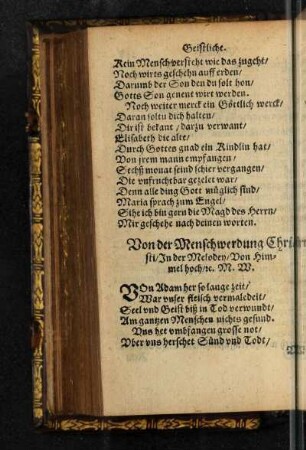 Geistliche.
Kein Mensch versteht wie das zugeht/
Noch wirts geschehn auff erden/
Darumb der Son den du solt hon/
Gotts Son genent wirt werden.
Noch weiter merck ein Göttlich werck/
Daran soltu dich halten/
Dir ist bekant/darzu verwant/
Elisabeth die alte/
Durch Gottes gnad ein Kindlin hat/
Von jrem mann empfangen/
Sechß monat seind schier vergangen/
Die vnfruchtbar gezelet war/
Denn alle ding Gott müglich sind/
Maria sprach zum Engel/
Sihe ich bin gern die Magd des Herrn/
Mir geschehe nach deinen worten.
Von der Menschwerdung Chri
sti/In der Melodey/Von Him-
mel hoch/ꝛc. M. W.
VOn Adam her so lange zeit/
War vnser fleisch vermaledeit/
Seel vnd Geist biß in Tod verwundt/
Am gantzen Menschen nichts gesund.
Vns het vmbfangen grosse not/
Vber vns herschet Sünd vnd Todt/